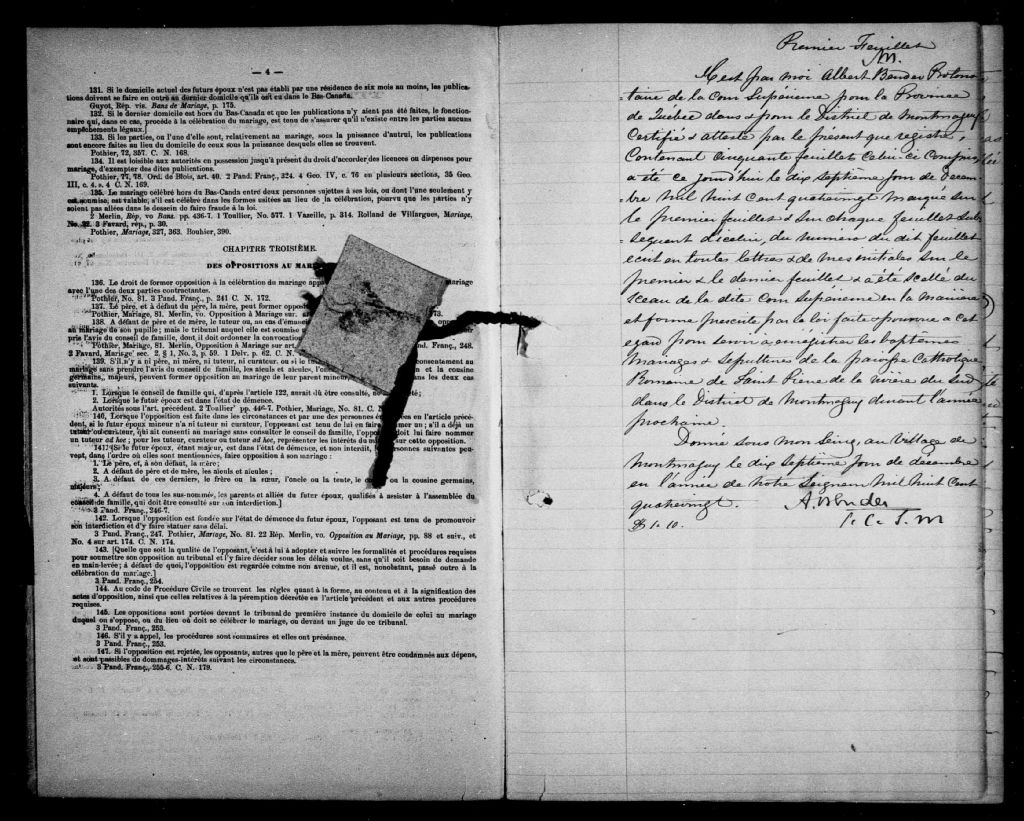 — 4 —
131. Si le domicile actuel des futurs époux n'est pas établi par une résidence de six mois au moins, les publica-
tions doivent se faire en outre au dernier domicile qu'ils ont eu dans le Bas-Canada.
Guyot, Rép. vis. Bans de Mariage, p. 175.
132. Si le dernier domicile est hors du Bas-Canada et que les publications n'y aient pas été faites, le fonction-
naire qui, dans ce cas, procède à la célébration du mariage, est tenu de s'assurer qu'il n'existe entre les parties aucun
empêchements légaux.]
133. Si les parties, ou l'une d'elle sont, relativement au mariage, sous la puissance d'autrui, les publications
sont encore faites au lieu du domicile de ceux sous la puissance desquels elles se trouvent.
Pothier, 72, 357. C. N. 168.
134. Il est loisible aux autorités en possession jusqu'à présent du droit d'accorder des licences ou dispenses pour
mariage, d'exempter des dites publications.
Pothier, 77, 78. Ord. de Blois, art. 40. 2 Pand. Franç., 324. 4 Geo. IV, c. 76 en plusieurs sections, 35 Geo.
III, c. 4. s. 4 C. N. 169.
135. Le mariage célébré hors du Bas-Canda entre deux personnes sujettes à ses lois, ou dont l'une seulement y
est soumise, est valable, s'il est célébré dans les formes usitées au lieu de la célébration, pourvu que les parties n'y
soient pas allées dans le dessein de faire fraude à la loi.
2 Merlin, Rép, vo Bans. pp. 436-7. 1 Toullier, No. 577. 1 Vazeille, p. 314. Rolland de Villargues, Mariage,
No. 22. 3 Favard, rép., p. 30.
Pothier, Mariage, 327, 363. Bouhier, 390.
CHAPITRE TROISIÈME.
DES OPPOSITIONS AU MAR
136. Le droit de former opposition à la célébration du mariage app mariage
avec l'une des deux parties contractantes.
Pothier, No. 81. 3 Pand. Franç., p. 241 C. N. 172.
137. Le père, et à défaut du père, la mère, peut former oppos
Pothier, Mariage, 81. Merlin, vo. Opposition à Mariage sur. 73.
138. A défaut de père et de mère, le tuteur ou, en cas d'émanc
au mariage de son pupille; mais le tribunal auquel elle est soumise
pris l'avis du conseil de famille, dont il doit ordonner la convocation
Pothier, Mariage, 81. Merlin, Opposition à Mariage sur art. Franç., 248.
2 Favard, Mariage sec. 2 § 1, No. 3, p. 59. 1 Delv. p. 62. C. N.
139. S'il n'y a ni père, ni mère, ni tuteur, ni curateur, ou si le tu onsentement au
mariage sans prendre l'avis du conseil de famille, les aïeuls et aïeules, l'onc et la cousine
germains, majeurs, peuvent former opposition au mariage de leur parent mineur dans les deux cas
suivants.
1. Lorsque le conseil de famille qui, d'après l'article 122, aurait dû être consulté, ne été;
2. Lorsque le futur époux est dans l'état de démence.
Autorités sous l'art. précédent. 2 Toullier pp. 446-7. Pothier, Mariage, No. 81. C. N.
140. Lorsque l'opposition est faite dans les circonstances et par une des personnes en l'article précé-
dent, si le futur époux mineur n'a ni tuteur ni curateur, l'opposant est tenu de lui en faire er un; s'il a déjà un
tuteur ou curateur, qui ait consenti au mariage sans consulter le conseil de famille, l'opposant doit lui faire nommer
un tuteur ad hoc; pour les tuteur, curateur ou tuteur ad hoc, représenter les intérêts du sur cette opposition.
141. Si le futur époux, étant majeur, est dans l'état de démence, et non interdit, personnes suivantes peu-
vent, dans l'ordre où elles sont mentionnées, faire opposition à son mariage:
1. Le père, et, à son défaut, la mère;
2. A défaut de père et de mère, les aïeuls et aïeules;
3. A défaut de ces derniers, le frère ou la sœur, l'oncle ou la tente, le ou la cousine germains,
majeurs;
4. A défaut de tous les sus-nommés, les parents et alliés du futur époux, qualifiés à assister à l'assemblée du
conseil de famille, qui doit être consulté sur son interdiction.]
3 Pand. Franç., 246-7.
142. Lorsque l'opposition est fondée sur l'état de démence du futur époux, l'opposant est tenu de promouvoir
son interdiction et d'y faire statuer sans délai.
3 Pand. Franç., 247. Pothier, Mariage, No. 81. 22 Rép. Merlin, vo. Opposition au Mariage, pp. 88 et suiv., et
No. 4 sur art. 174. C. N. 174.
143. [Quelle que soit la qualité de l'opposant, c'est à lui à adopter et suivre les formalités et procédures requises
pour soumettre son opposition au tribunal et l'y faire décider sous les délais voulus, sans qu'il soit besoin de demande
en main-levée; à défaut de quoi, l'opposition est regardée comme non avenue, et il est, nonobstant, passé outre à la
célébration du mariage.]
3 Pand. Franç., 254.
144. Au code de Procédure Civile se trouvent les règles quant à la forme, au contenu et à la signification des
actes d'opposition, ainsi que celles relatives à la péremption décrétée en l'article précédent et aux autres procédures
requises.
145. Les oppositions sont portées devant le tribunal de première instance du domicile de celui au mariage
duquel on s'oppose, ou du lieu où doit se célébrer le mariage, ou devant un juge de ce tribunal.
3 Pand. Franç., 253.
146. S'il y a appel, les procédures sont sommaires et elles ont préséance.
3 Pand. Franç., 253.
147. Si l'opposition est rejetée, les opposants, autres que le père et la mère, peuvent être condamnés aux dépens,
et sont passibles de dommages-intérêts suivant les circonstances.
3 Pand. Franç., 255-6. C. N. 179.
Premier Feuillet
C'est par moi Albert Bender Protono-
taire de la Cour Supérieure pour la Province
de Québec dans & pour le District de Montmagny
Certifié & attesté par le présent que registre,
Contenant Cinquante feuillets Celui-ci Compris,
a été ce jourd'hui le dix Septième jour de Décem-
bre mil huit Cent quatrevingt marqué sur
le premier feuillet & sur chaque feuillet Sub-
séquent d'icelui, du numéro du dit feuillet
écrit en toutes lettres & de mes initiales sur le
premier & le dernier feuillet & a été scellé du
Sceau de la dite Cour Supérieure en la Manière
et forme prescrite par la loi faite & pourvue à cet
égard pour servir à enrégistrer les baptêmes
Mariages & Sépultures de la paroisse Catholique
Romaine de Saint Pierre de la rivière du Sud
dans le District de Montmagny durant l'année
prochaine.
Donné sous mon Seing, au Village de
Montmagny le dix Septième jour de décembre
en l'année de Notre Seigneur Mil huit Cent
quatrevingt. A. Bender
P. C. S. M